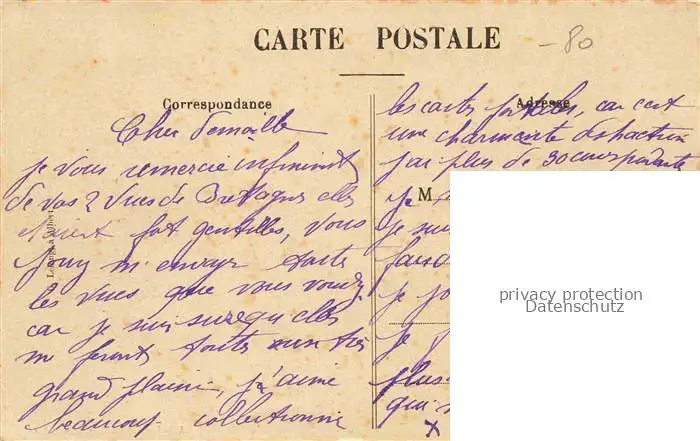 CARTE POSTALE
80
Correspondance
Adresse
Cher Demoiselle
je vous remercie infiniment
de vos 2 vues de Bretagne elles
étaient fort gentilles, vous
pouv m'envoyer toute
les vues que vous voudrez,
car je suis sure qu elles
m feront toutes un très
grand plaisir, j'aime
beaucoup collectionner
les cartes postales, car c'est
une charmante distraction
j'ai plus de 30 correspondants
M
je
je suis
je
je
plus
qui
privacy protection
Datenschutz